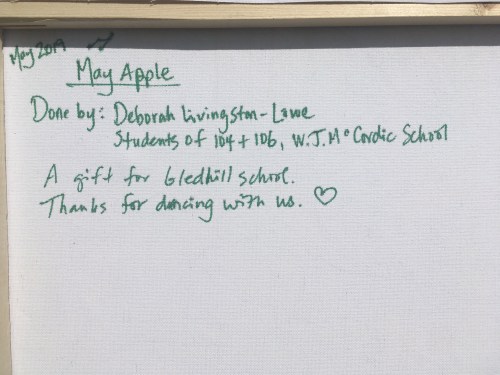 May 2019
May Apple
Done by: Deborah Livingston-Lowe
Students of 104 + 106, W.J. McCordic School
A gift for Gledhill school.
Thanks for dancing with us. ♡